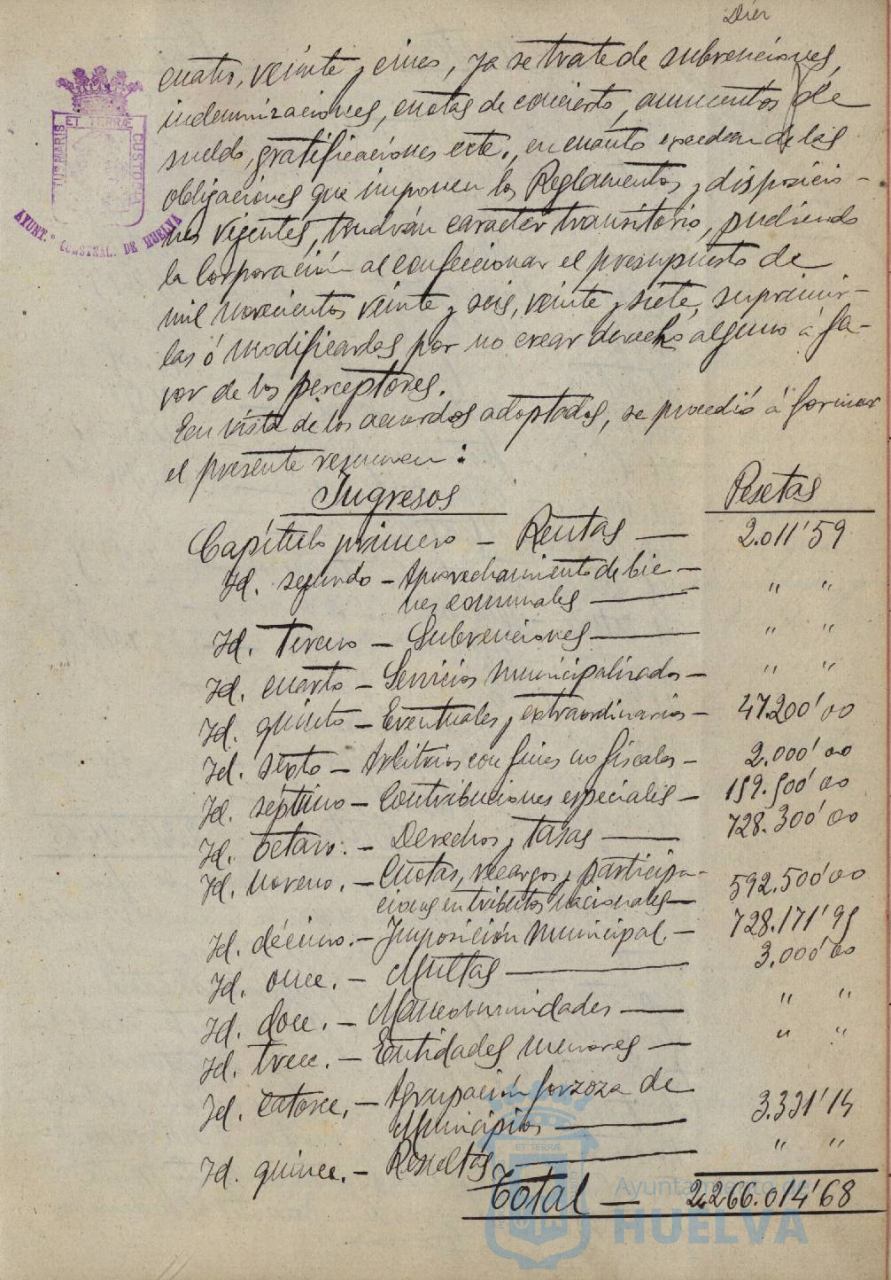 Diez
cuatro, veinte y cinco, ya se trate de subvenciones,
indemnizaciones, cuotas de concierto, aumentos de
sueldo, gratificaciones ect., en cuanto excedan de las
obligaciones que imponen los Reglamentos y disposicio-
nes vigentes, tendrán carácter transitorio, pudiendo
la Corporación al confeccionar el presupuesto de
mil novecientos veinte y seis, veinte y siete, suprimir-
las ó modificarlas por no crear derecho alguno á fa-
vor de los perceptores.
En vista de los acuerdos adoptados, se procedió á formar
el presente resumen:
Ingresos Pesetas
Capítulo primero — Rentas — 2.011'59
Id. segundo — Aprovechamiento de bie-
nes comunales — " "
Id. tercero — Subvenciones — " "
Id. cuarto — Servicios municipalizados — " "
Id. quinto — Eventuales y extraordinarios — 47.200'00
Id. sexto — Arbitrios con fines no fiscales — 2.000'00
Id. séptimo — Contribuciones especiales — 159.500'00
Id. Octavo. — Derechos y tasas — 728.300'00
Id. noveno. — Cuotas, recargos y participa-
ciones en tributos nacionales — 592.500'00
Id. décimo. — Imposición municipal. — 728.171'95
Id. once. — Multas — 3.000'00
Id. doce. — Mancomunidades — " "
Id. trece. — Entidades menores — " "
Id. catorce. — Agrupación forzoza de
Municipios — 3.331'14
Id. quince. — Resultas — " "
Total — 2.266.014'68
ET TERRÆ
CUSTODIA
PORTUS MARIS
AYUNT.º CONSTNAL. DE HUELVA
Ayuntamiento de
HUELVA